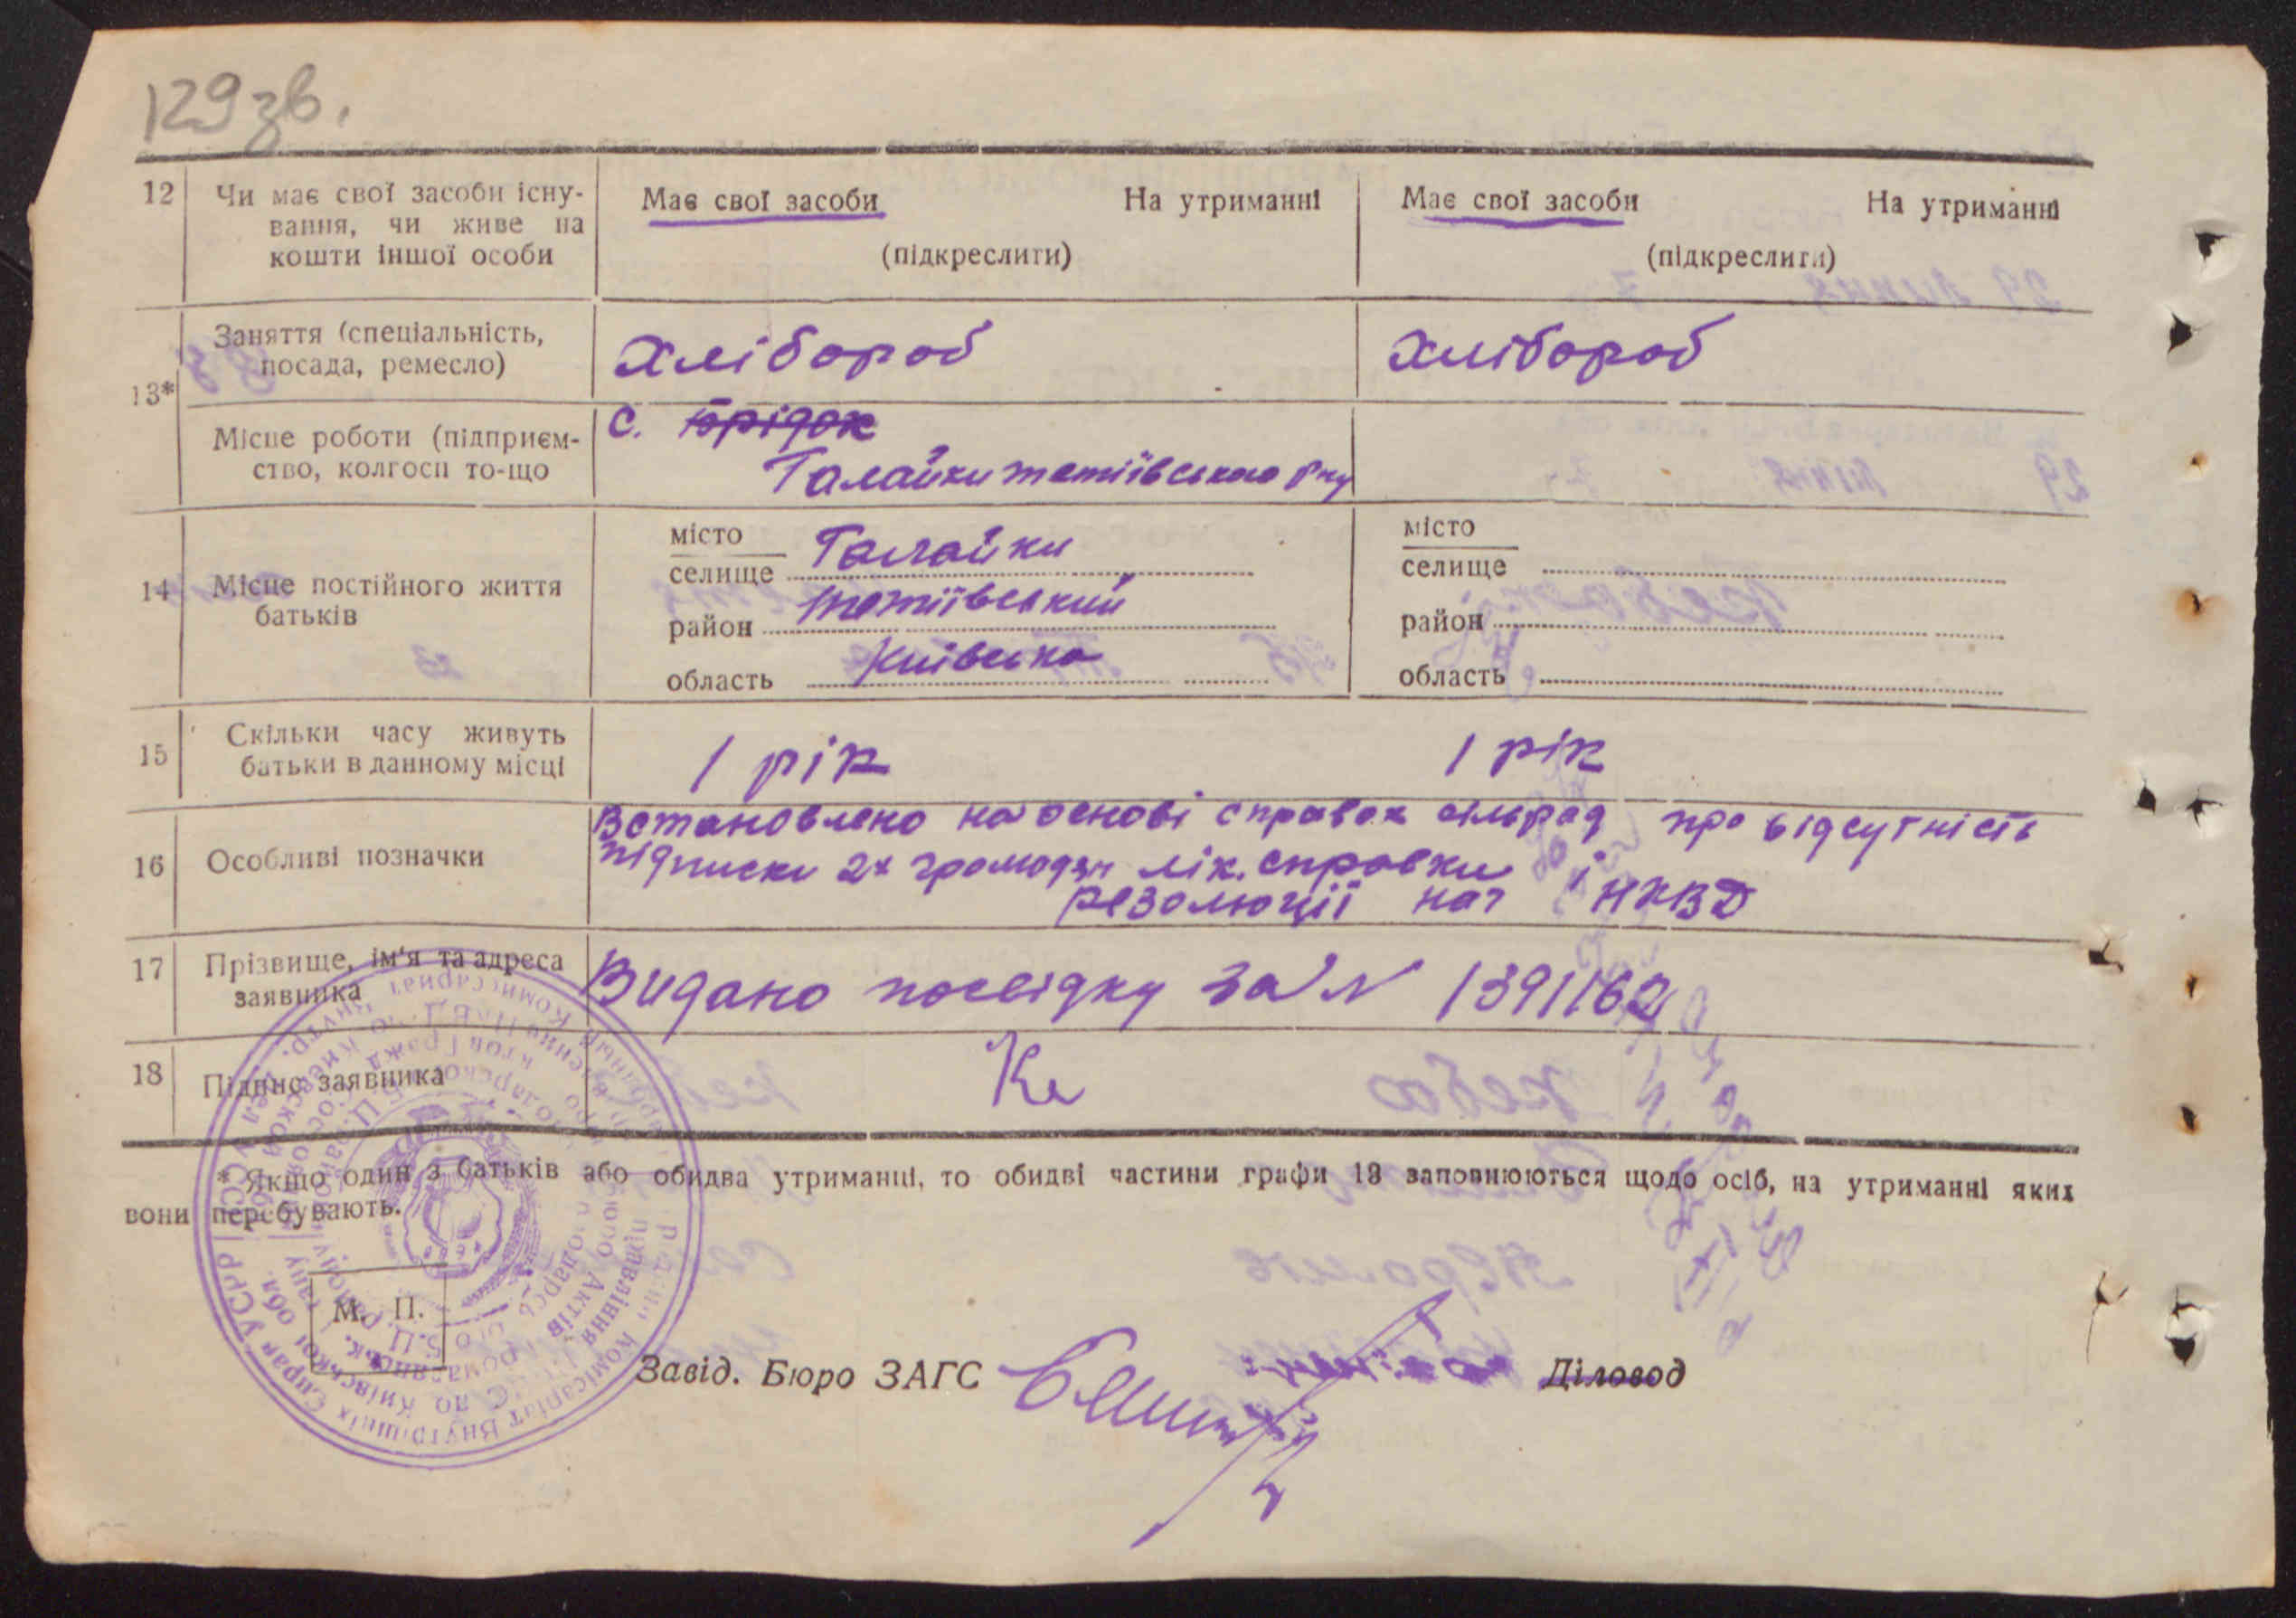 129 зв.
12 Чи має свої засоби існу-
вання, чи живе на
кошти іншої особи
Має свої засоби На утриманні
(підкреслити)
Має свої засоби На утриманні
(підкреслити)
13*
Заняття (спеціальність,
посада, ремесло)
Хлібороб
Хлібороб
Місце роботи (підприєм-
ство, колгосп то-що
с.
Галайки тетіївського р-ну
14 Місце постійного життя
батьків
місто
селище Галайки
район тетіївський
область Київська
місто
селище
район
область
15 Скільки часу живуть
батьки в данному місці
1 рік
1 рік
16 Особливі позначки
Встановлено на основі справок сільрад про відсутність
підписки 2х громадян лік. справки і
резолюції нач НКВД
17 Прізвище, ім'я та адреса
заявника
Видано посвідку за № 1391162
18 Підпис заявника
Ке
* Якщо один з батьків або обидва утриманці, то обидві частини графи 13 заповнюються щодо осіб, на утриманні яких
вони перебувають.
М. П.
Завід. Бюро ЗАГС
Діловод